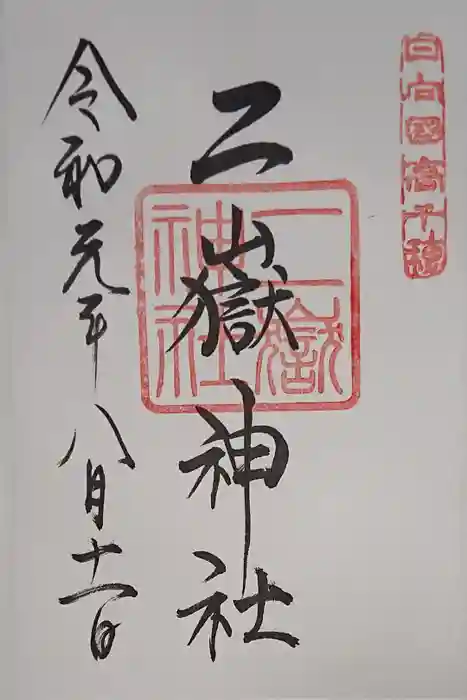 日向國高千穂
二嶽神社
二嶽神社
令和元年八月十一日